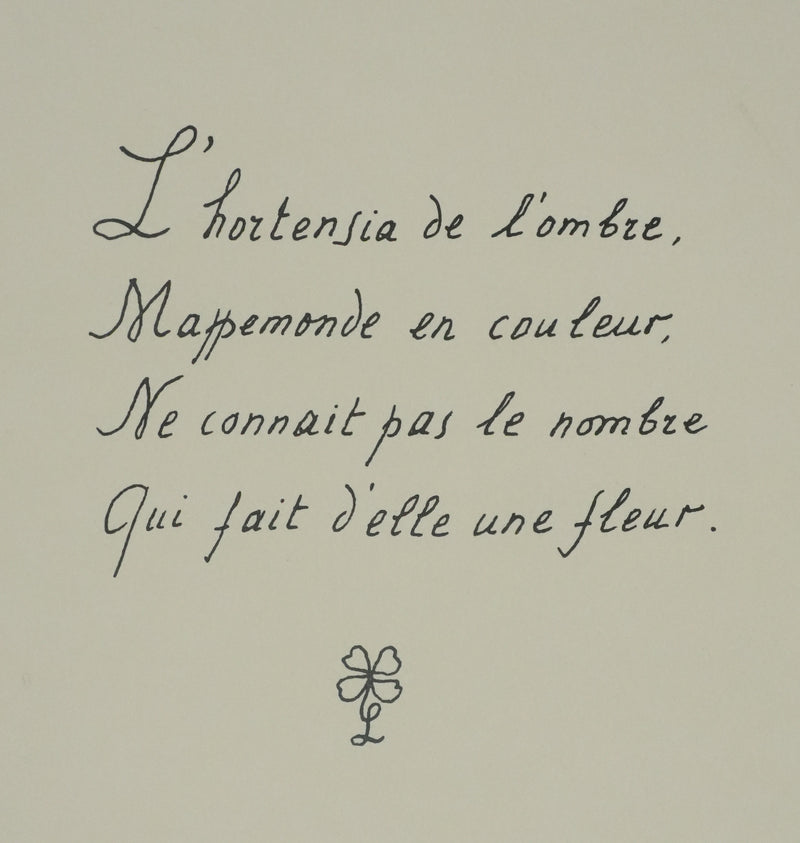 L'hortensia de l'ombre,
Mappemonde en couleur,
Ne connait pas le nombre
Qui fait d'elle une fleur.
L